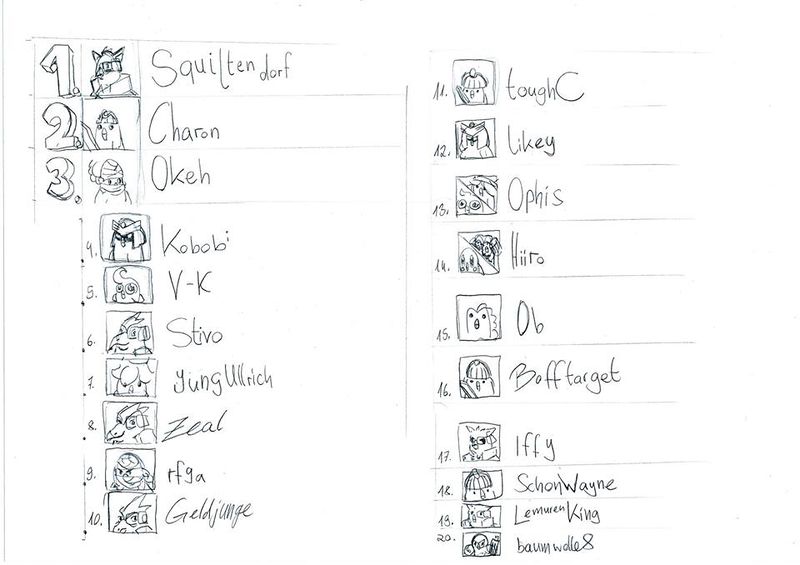 1. Squiltendorf
2. Charon
3. Okeh
4. Kobobi
5. V-K
6. Stivo
7. YungUllrich
8. Zeal
9. rfga
10. Geldjunge
11. toughC
12. Likey
13. Ophis
14. Hiro
15. Ob
16. Bofftarget
17. Iffy
18. SchonWayne
19. LemurenKing
20. baumwolle8